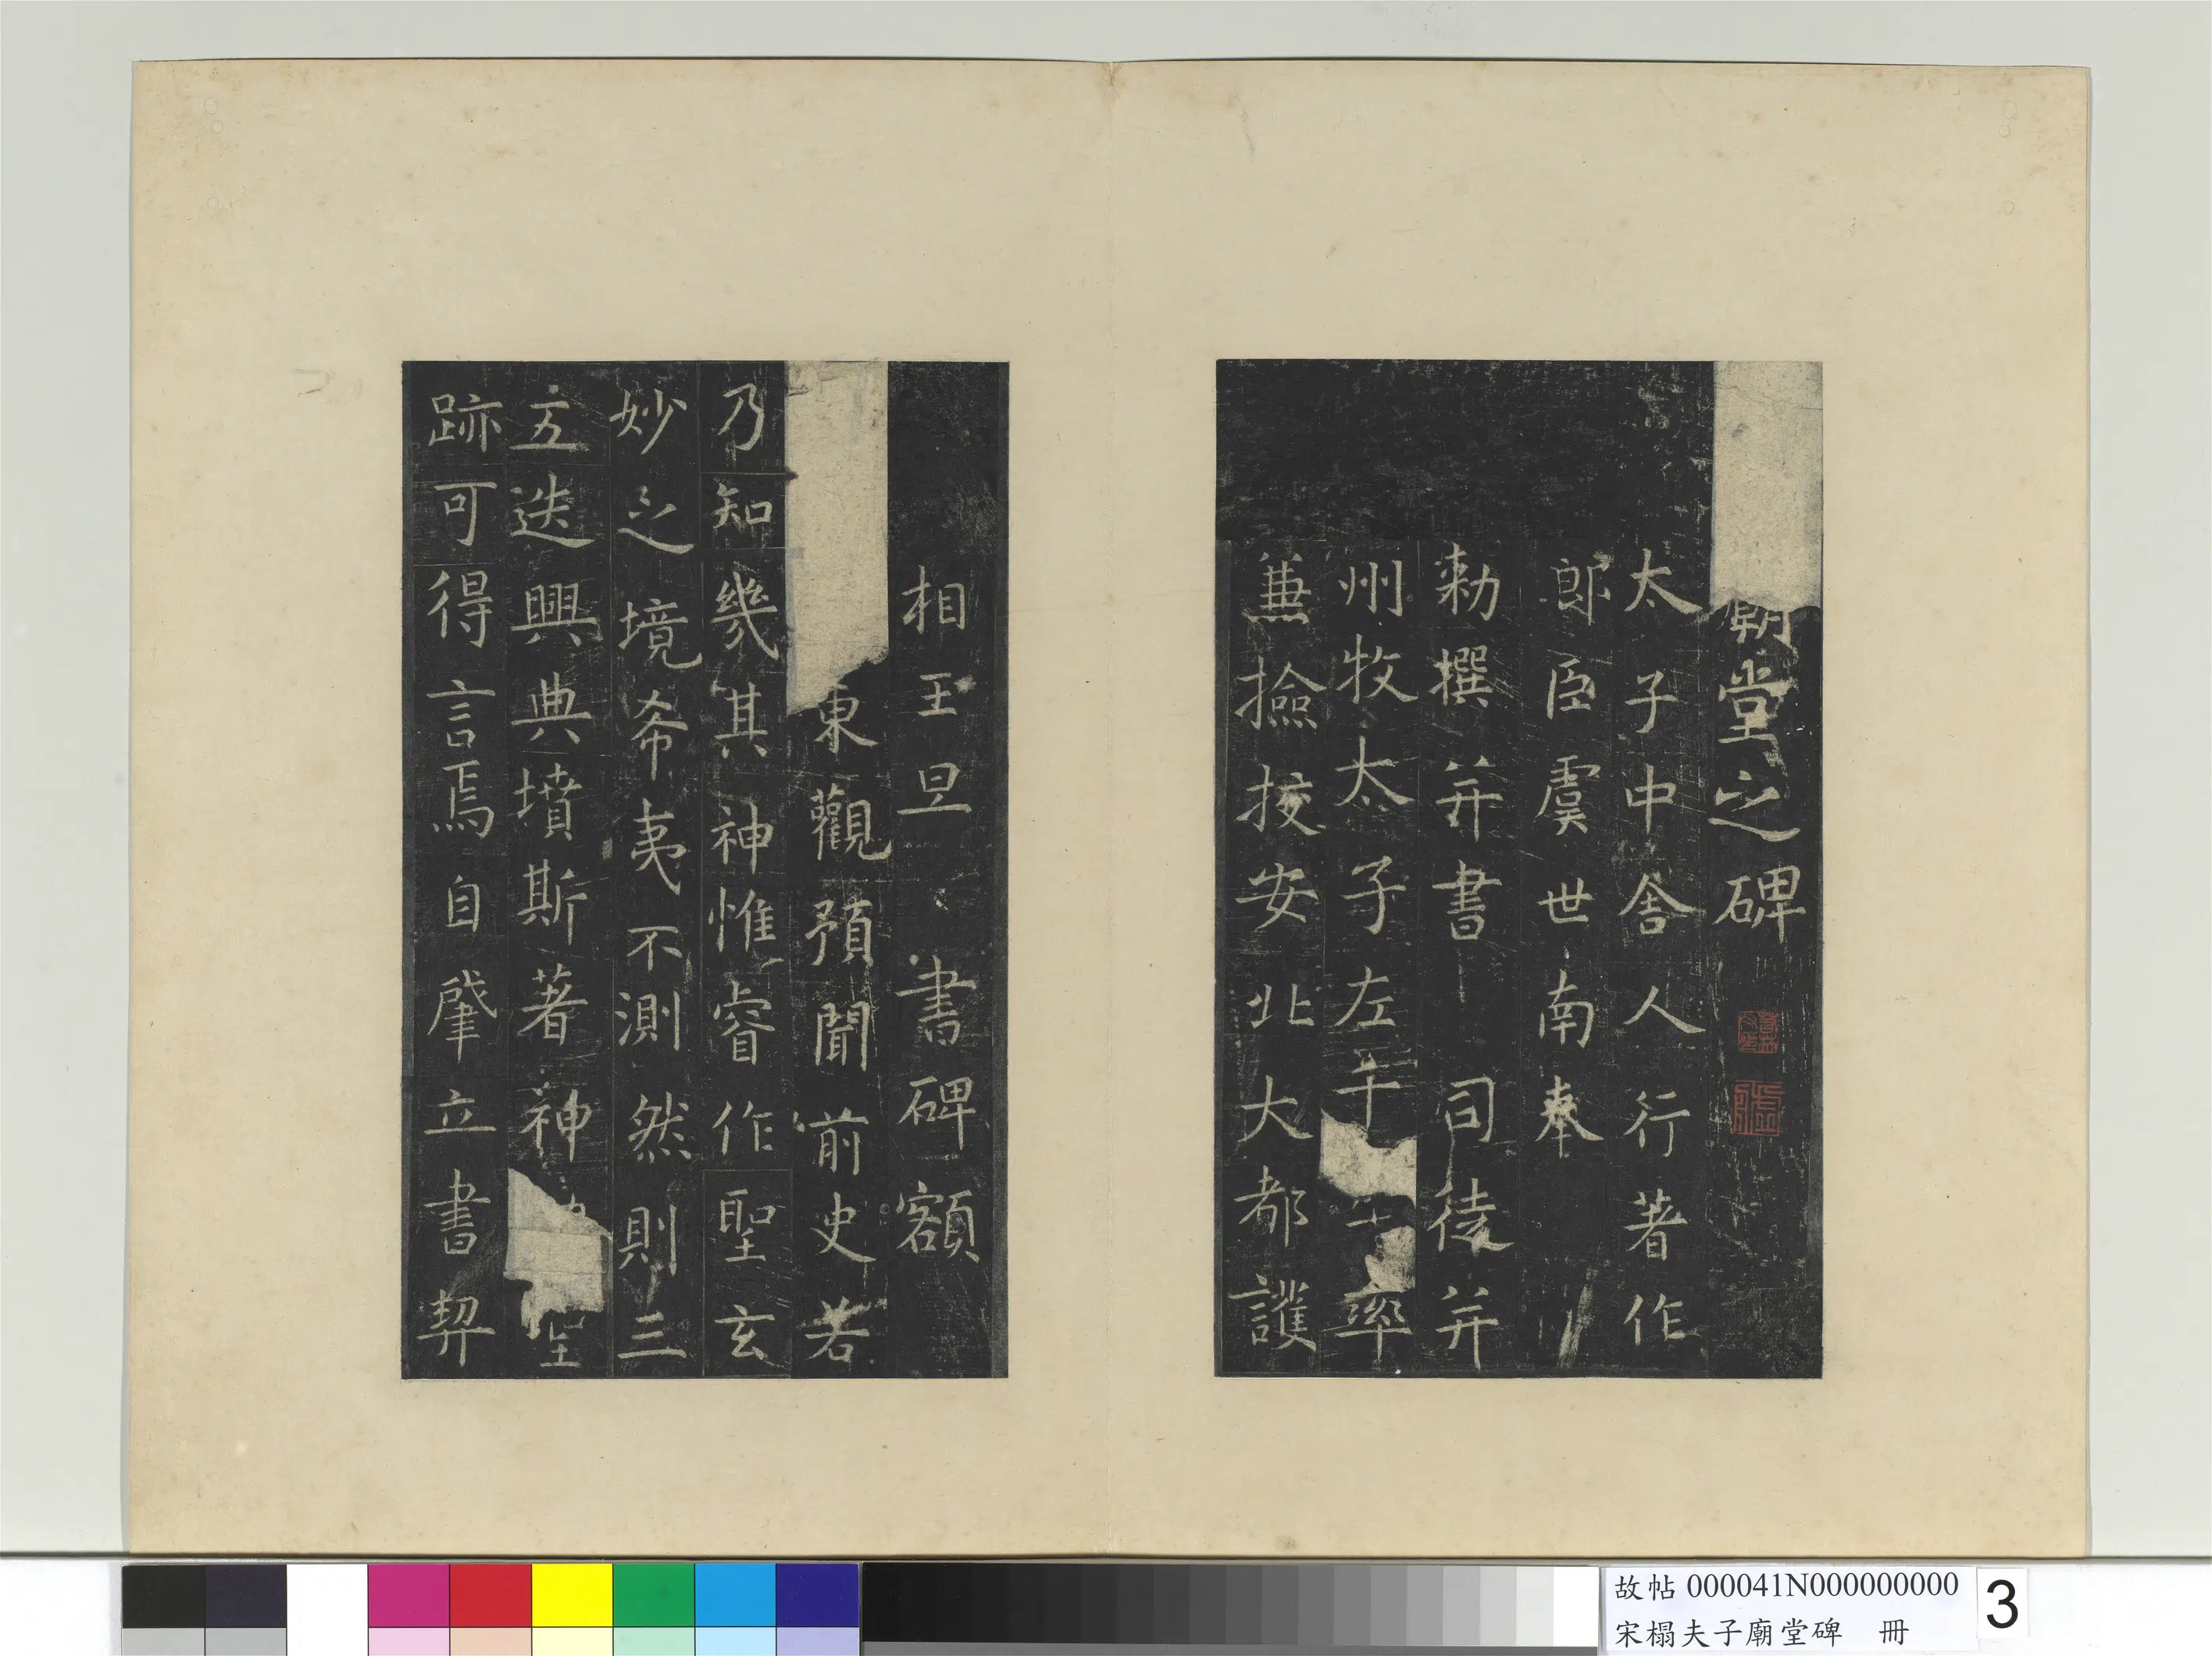 廟堂之碑
太子中舍人行著作
郎臣虞世南奉
勑撰并書 司徒并
州牧太子左千率
兼撿挍安北大都護
相王旦 書碑額
東觀預聞前史若
乃知幾其神惟睿作聖玄
妙之境希夷不測然則三
五迭興典墳斯著神聖
跡可得言焉自肇立書契
故帖 000041N000000000
宋榻夫子廟堂碑 冊
3